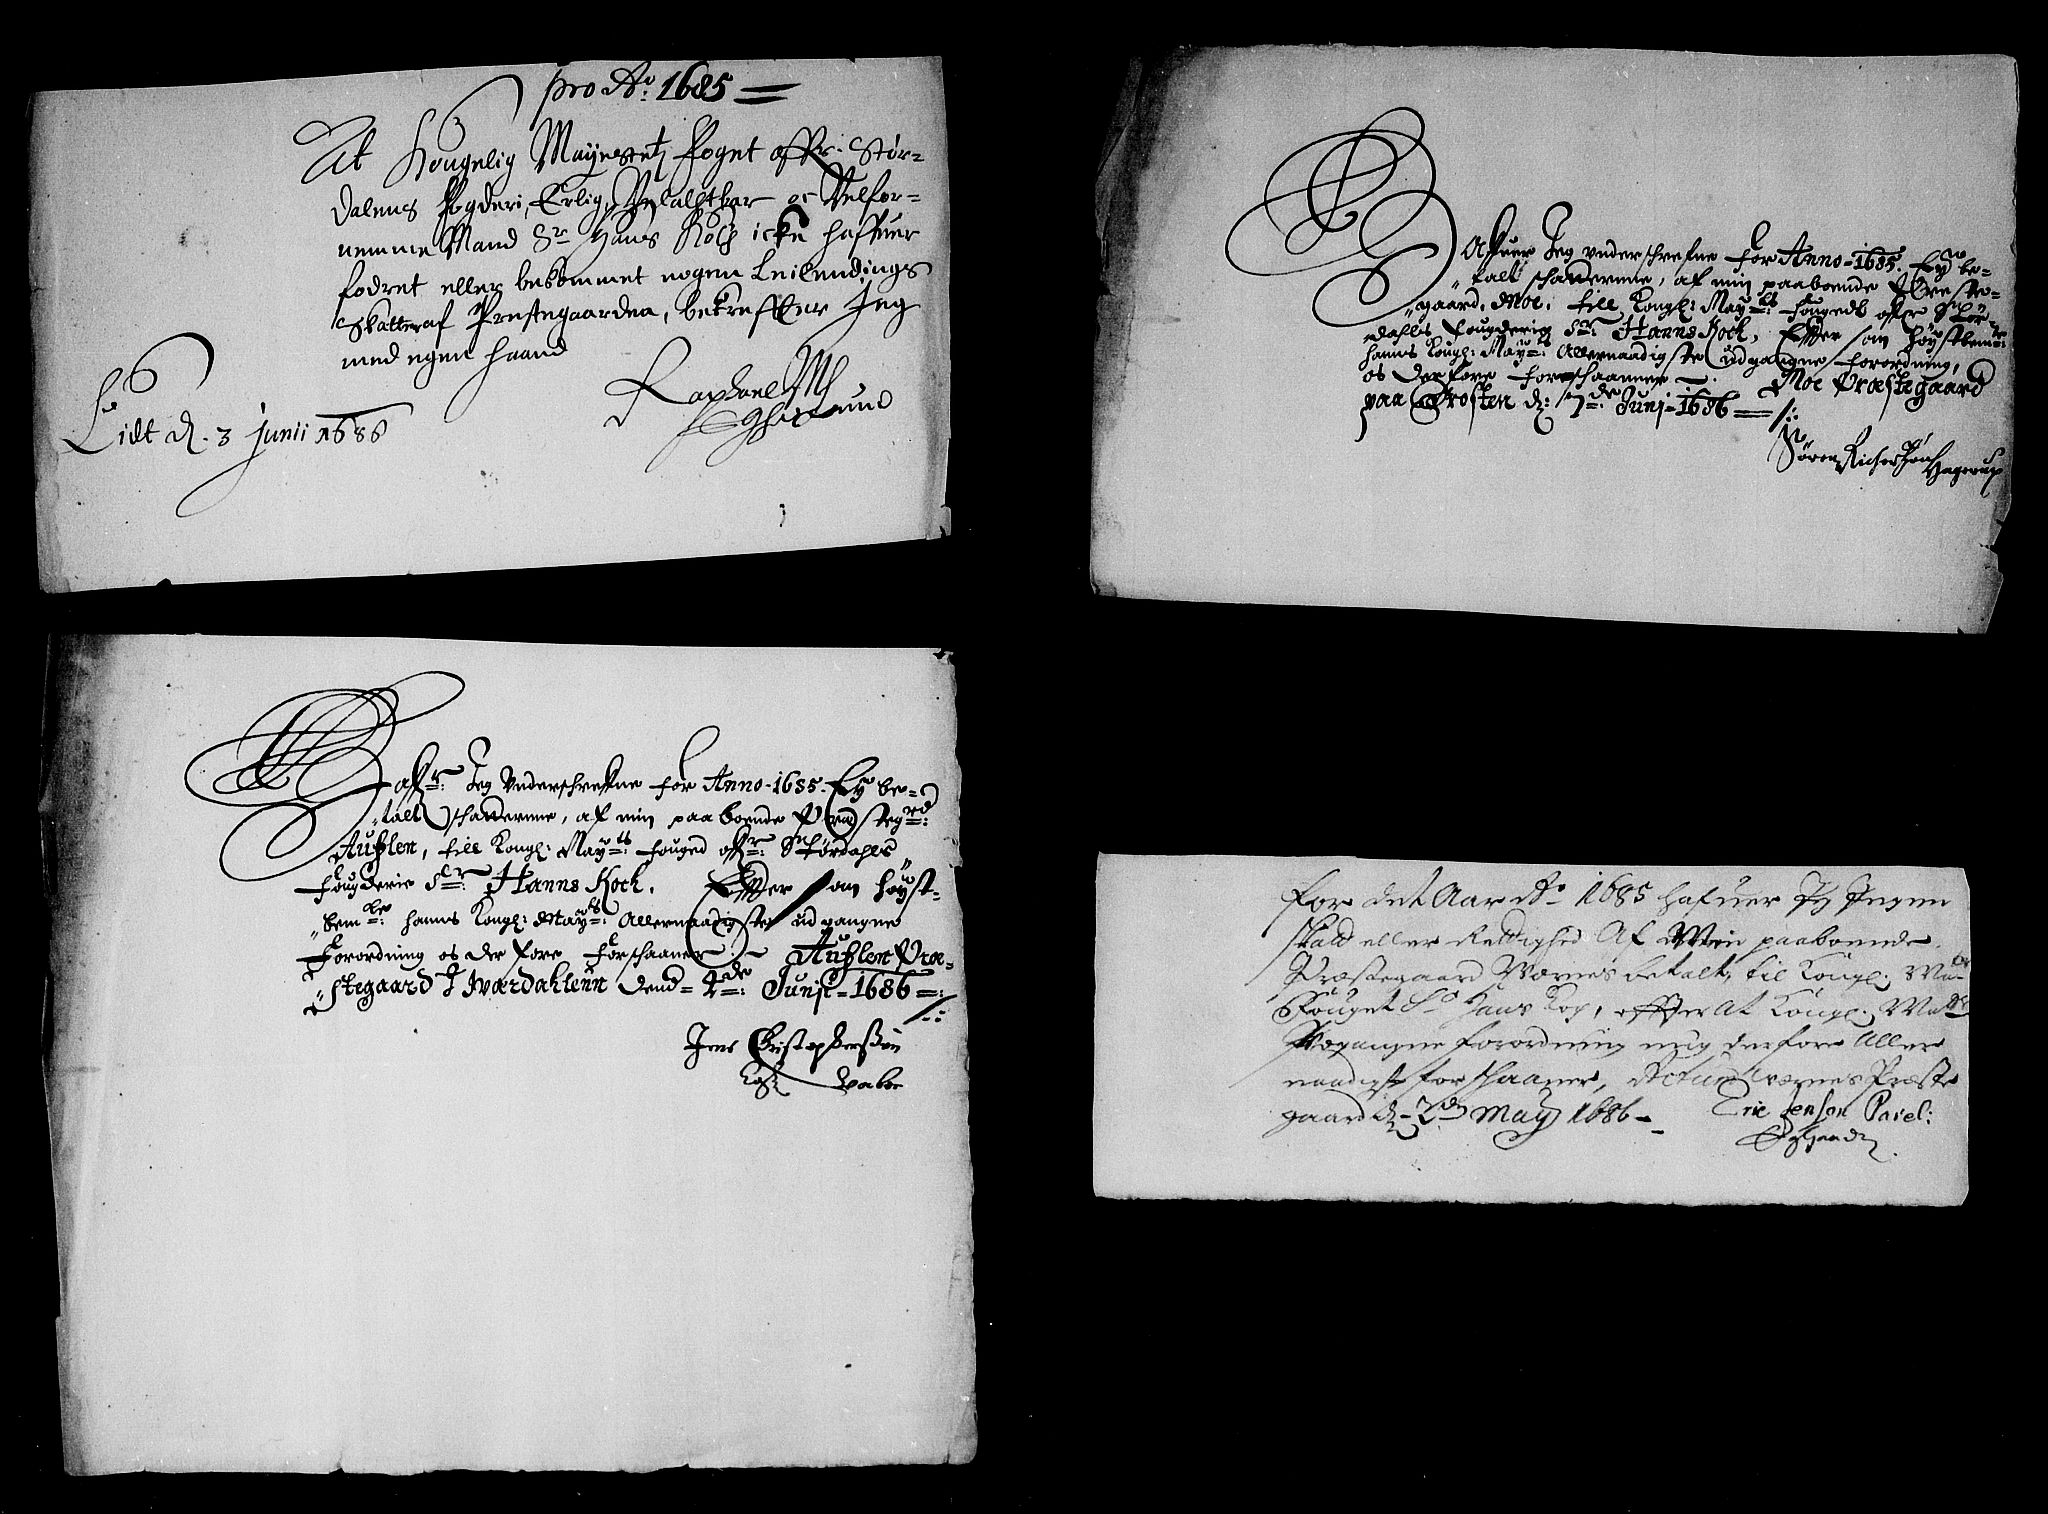 pro Ao: 1685
At Kongelig Mayestetz foget offr. Stør-
dalens fogderi, Erlig, Velachtbar oc Velfor-
nemme Mand Sr Hans Koch icke haffuer
fodret eller bekommet nogen Leilendings
Skatter af Prestegaarden, bekreffter Jeg
med egen haand
Raphael
Lidt d. 3 Junii 1686
Haffuer Jeg underschrefne for Anno-1685. Ey be-
talt schatterne, af min paaboende Præste-
gaard, Moe, till Kongl: Mayts: fougedt offr Stør-
dahls fougderie Sr: Hanns Koch, Effter som høystbemte:
hanns Kongl: Mayts: Allernaadigste udgangne forordning,
os derfore forschaaner. Moe Præstegaard
paa Frosten d: 7de: Junj-1686
Søren Hagerup
Haffr: Jeg Underschrefne for Anno-1685. Ey be-
talt schatterne, af min paaboende Præstegrd:
Außlen, till Kongl: Mayts: fouged offr: Størdahls
fougderie Sr: Hanns Koch. Effter som høyst-
bemte: hanns Kongl: Mayts: Allernaadigste udgangne
Forordning os derfore forschaaner. Außlen Præ-
stegaard J Sværdahlenn dend-2de: Junj-1686
Jens Christophersøn

For det Aar Ao 1685 hafuer Jeg Ingen
skatt eller Rettighed Af Min paaboende
Præstegaard Wærnes betalt, til Kongl: Ma-
Fouget Sr Hans Koch, effter At Kongl: Ma
Udgangne forordning mig derfore Aller
naadigst forschaaner, Actum Værnes Præste
gaard d. 2d May 1686
Eric Jenson Pavel: